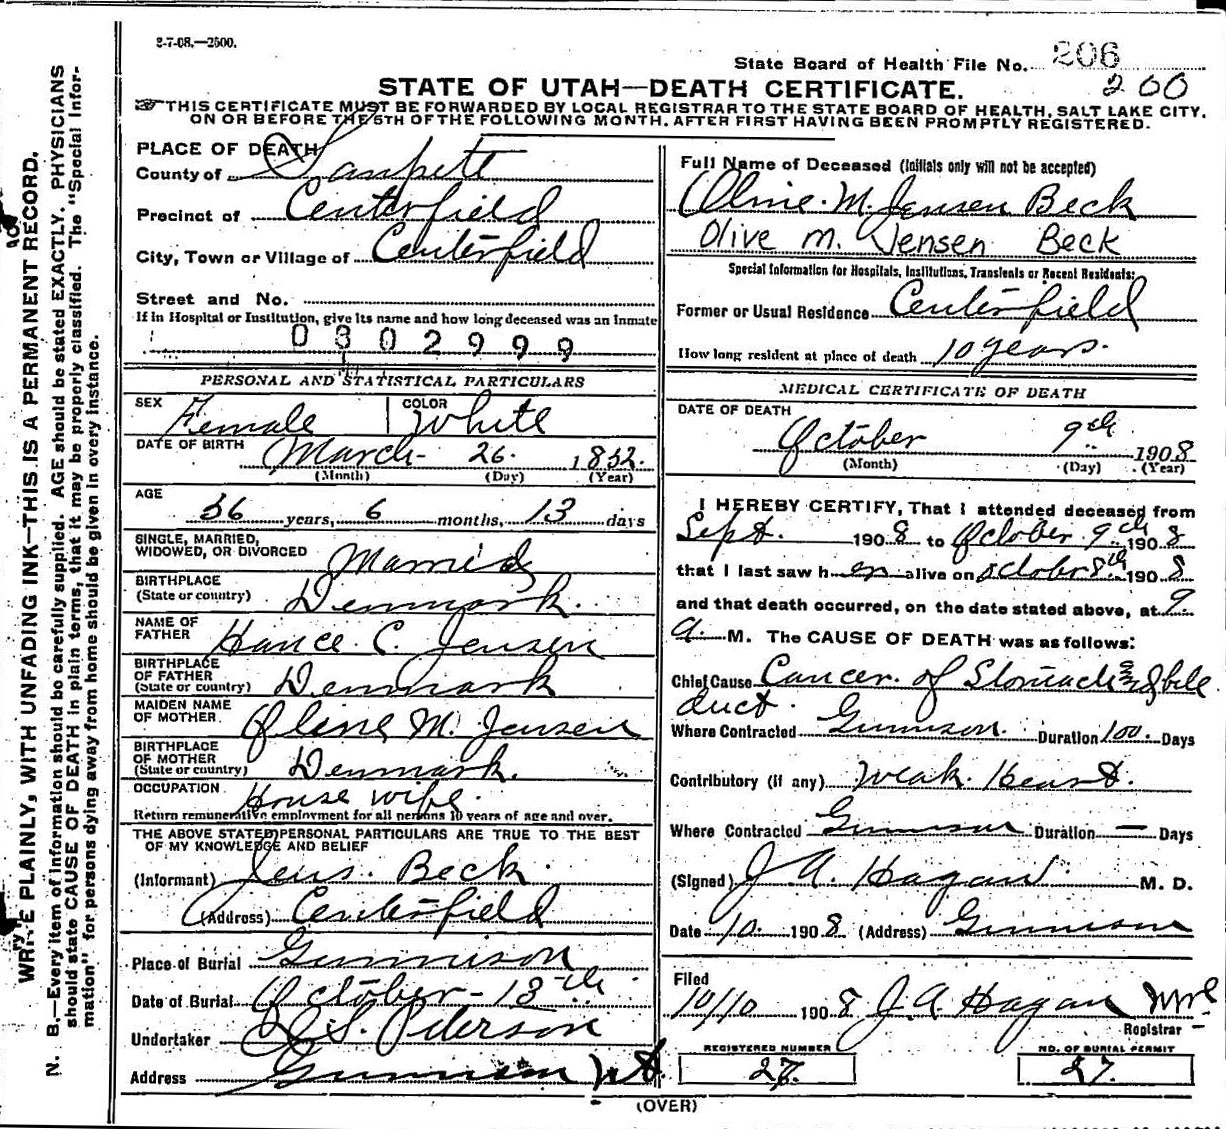 2-7-08.—2500.
State Board of Health File No. 206
200
STATE OF UTAH—DEATH CERTIFICATE.
THIS CERTIFICATE MUST BE FORWARDED BY LOCAL REGISTRAR TO THE STATE BOARD OF HEALTH, SALT LAKE CITY,
ON OR BEFORE THE 5TH OF THE FOLLOWING MONTH, AFTER FIRST HAVING BEEN PROMPTLY REGISTERED.
PLACE OF DEATH
County of Sanpete
Precinct of Centerfield
City, Town or Village of Centerfield
Street and No.
If in Hospital or Institution, give its name and how long deceased was an Inmate
0302999
PERSONAL AND STATISTICAL PARTICULARS
SEX Female COLOR White
DATE OF BIRTH March 26. 1852.
(Month) (Day) (Year)
AGE
56 years, 6 months, 13 days
SINGLE, MARRIED,
WIDOWED, OR DIVORCED Married
BIRTHPLACE
(State or country) Denmark.
NAME OF
FATHER Hance C. Jensen
BIRTHPLACE
OF FATHER
(State or country) Denmark
MAIDEN NAME
OF MOTHER Oline M. Jensen
BIRTHPLACE
OF MOTHER
(State or country) Denmark.
OCCUPATION House wife.
Return remunerative employment for all persons 10 years of age and over.
THE ABOVE STATED PERSONAL PARTICULARS ARE TRUE TO THE BEST
OF MY KNOWLEDGE AND BELIEF
(Informant) Jens. Beck.
(Address) Centerfield
Place of Burial Gunnison
Date of Burial October - 13th
Undertaker S. Peterson
Address Gunnison Ut.
Full Name of Deceased (Initials only will not be accepted)
Oline. M. Jensen Beck
Olive M. Jensen Beck
Special Information for Hospitals, Institutions, Transients or Recent Residents:
Former or Usual Residence Centerfield
How long resident at place of death 10 years.
MEDICAL CERTIFICATE OF DEATH
DATE OF DEATH
October 9th 1908
(Month) (Day) (Year)
I HEREBY CERTIFY, That I attended deceased from
Sept. 1908 to October 9th 1908
that I last saw her alive on october 8th 1908
and that death occurred, on the date stated above, at 9
a. M. The CAUSE OF DEATH was as follows:
Chief Cause Cancer. of Stomach and bile
duct.
Where Contracted Gunnison. Duration 100. Days
Contributory (if any) Weak. Heart.
Where Contracted Gunnison Duration — Days
(Signed) J. A. Hagan. M. D.
Date 10. 1908 (Address) Gunnison
Filed
10/10 1908 J. A. Hagan
Registrar
REGISTERED NUMBER
27.
NO. OF BURIAL PERMIT
27.
(OVER)
WRITE PLAINLY, WITH UNFADING INK—THIS IS A PERMANENT RECORD.
N. B.—Every item of information should be carefully supplied. AGE should be stated EXACTLY. PHYSICIANS
should state CAUSE OF DEATH in plain terms, that it may be properly classified. The "Special Infor-
mation" for persons dying away from home should be given in every instance.